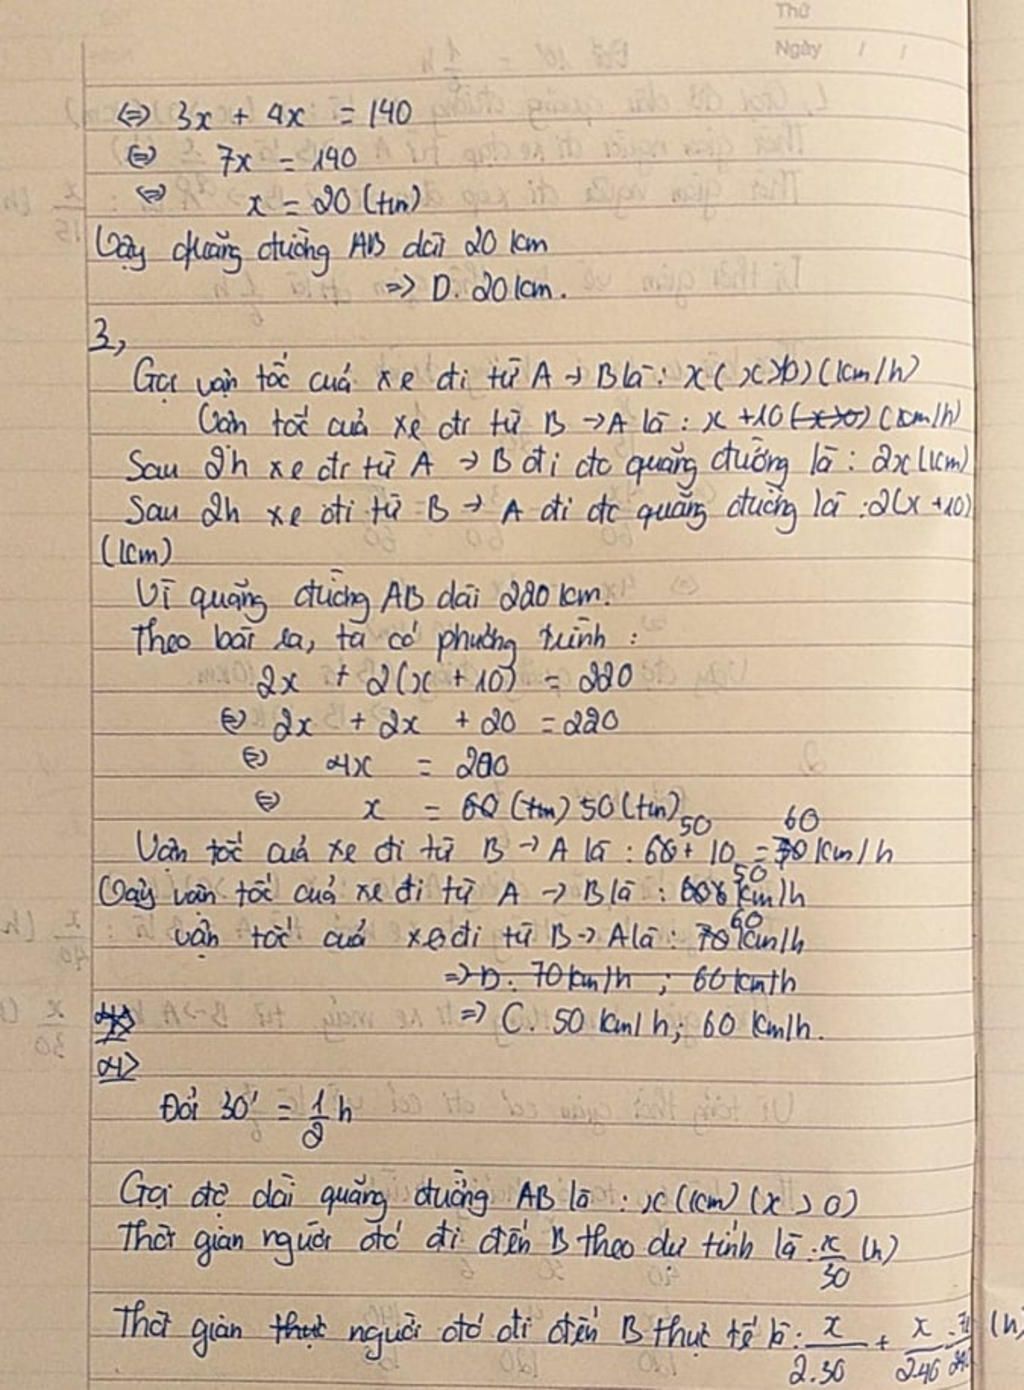 Thứ
Ngày / /
⇔ 3x + 4x = 140
⇔ 7x = 140
⇔ x = 20 (tm)
Vậy quãng đường AB dài 20 km
=> D. 20 km.
3,
Gọi vận tốc của xe đi từ A → B là: x (x>0) (km/h)
Vận tốc của xe đi từ B → A là: x +10 (x>0) (km/h)
Sau 2h xe đi từ A → B đi đc quãng đường là: 2x (km)
Sau 2h xe đi từ B → A đi đc quãng đường là: 2(x +10)
(km)
Vì quãng đường AB dài 220 km.
Theo bài ra, ta có phương trình:
2x + 2(x + 10) = 220
⇔ 2x + 2x + 20 = 220
⇔ 4x = 200
⇔ x = 60 (tm) 50 (tm)
50 60
Vận tốc của xe đi từ B → A là: 60 + 10 = 70 km/h
50
Vậy vận tốc của xe đi từ A → B là: 60 km/h
60
vận tốc của xe đi từ B → A là: 70 km/h
=> D. 70 km/h ; 60 km/h
=> C. 50 km/h; 60 km/h.
4>
Đổi 30' = 1/2 h
Gọi độ dài quãng đường AB là: x (km) (x > 0)
Thời gian người đó đi đến B theo dự tính là: x/30 (h)
Thời gian thực người đó đi đến B thực tế là: x/2.30 + x/2.40 (h)